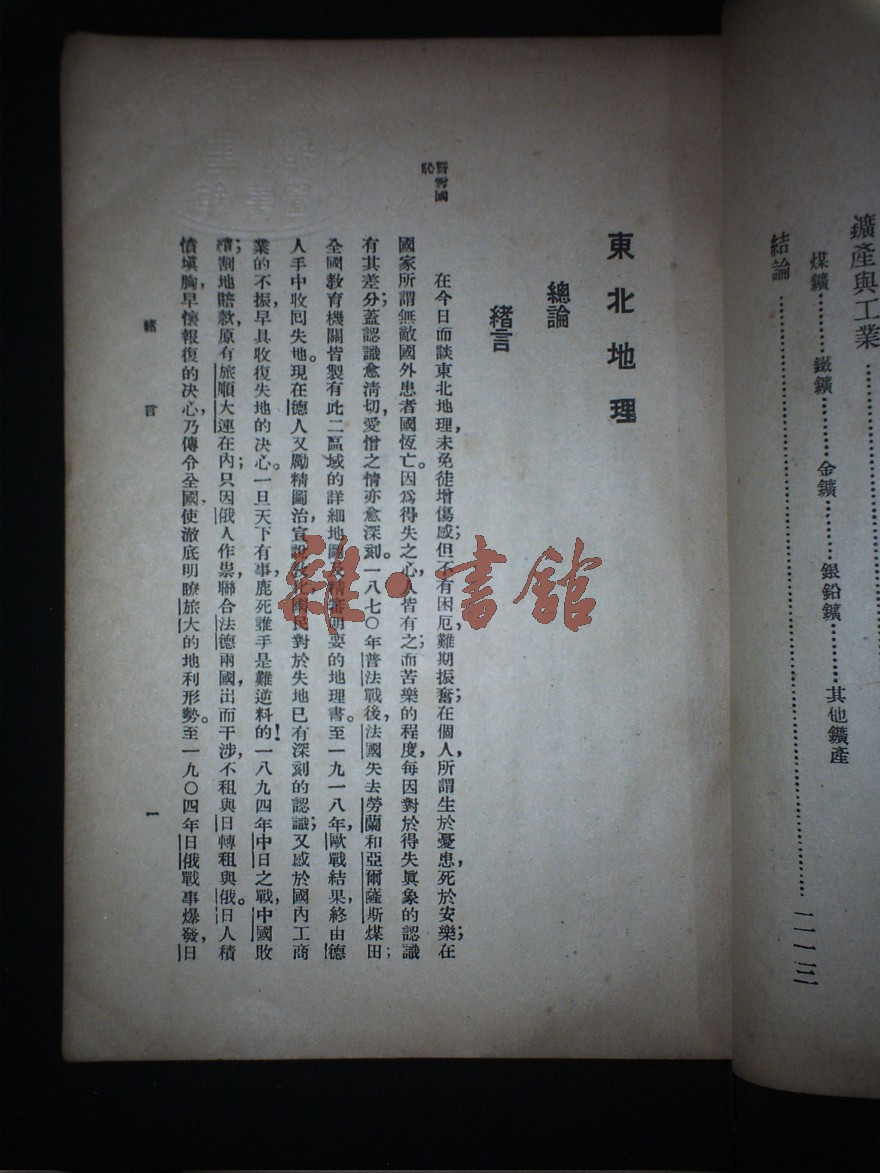 鑛產與工業
煤鑛 鐵鑛 金鑛 銀鉛鑛 其他鑛產
結論 二一三
東北地理
總論
緒言
誓雪國恥
在今日而談東北地理，未免徒增傷感；但不有困厄，難期振奮；在個人，所謂生於憂患，死於安樂；在
國家所謂無敵國外患者國恆亡。因爲得失之心，人皆有之；而苦樂的程度，每因對於得失眞象的認識
有其差分；蓋認識愈淸切，愛憎之情亦愈深刻。一八七〇年普法戰後，法國失去勞蘭和亞爾薩斯煤田；
全國教育機關皆製有此二區域的詳細地圖及精審明要的地理書。至一九一八年，歐戰結果，終由德
人手中收回失地。現在德人又勵精圖治，宣設教化，國民對於失地已有深刻的認識；又感於國內工商
業的不振，早具收復失地的决心。一旦天下有事，鹿死誰手，是難逆料的！一八九四年中日之戰，中國敗
績；割地賠款，原有旅順大連在內；只因俄人作祟，聯合法德兩國，出而干涉，不租與日，轉租與俄。日人積
憤塡胸，早懷報復的决心，乃傳令全國，使澈底明瞭旅大的地利形勢。至一九〇四年日俄戰事爆發，日
緒言 一
雜·書館